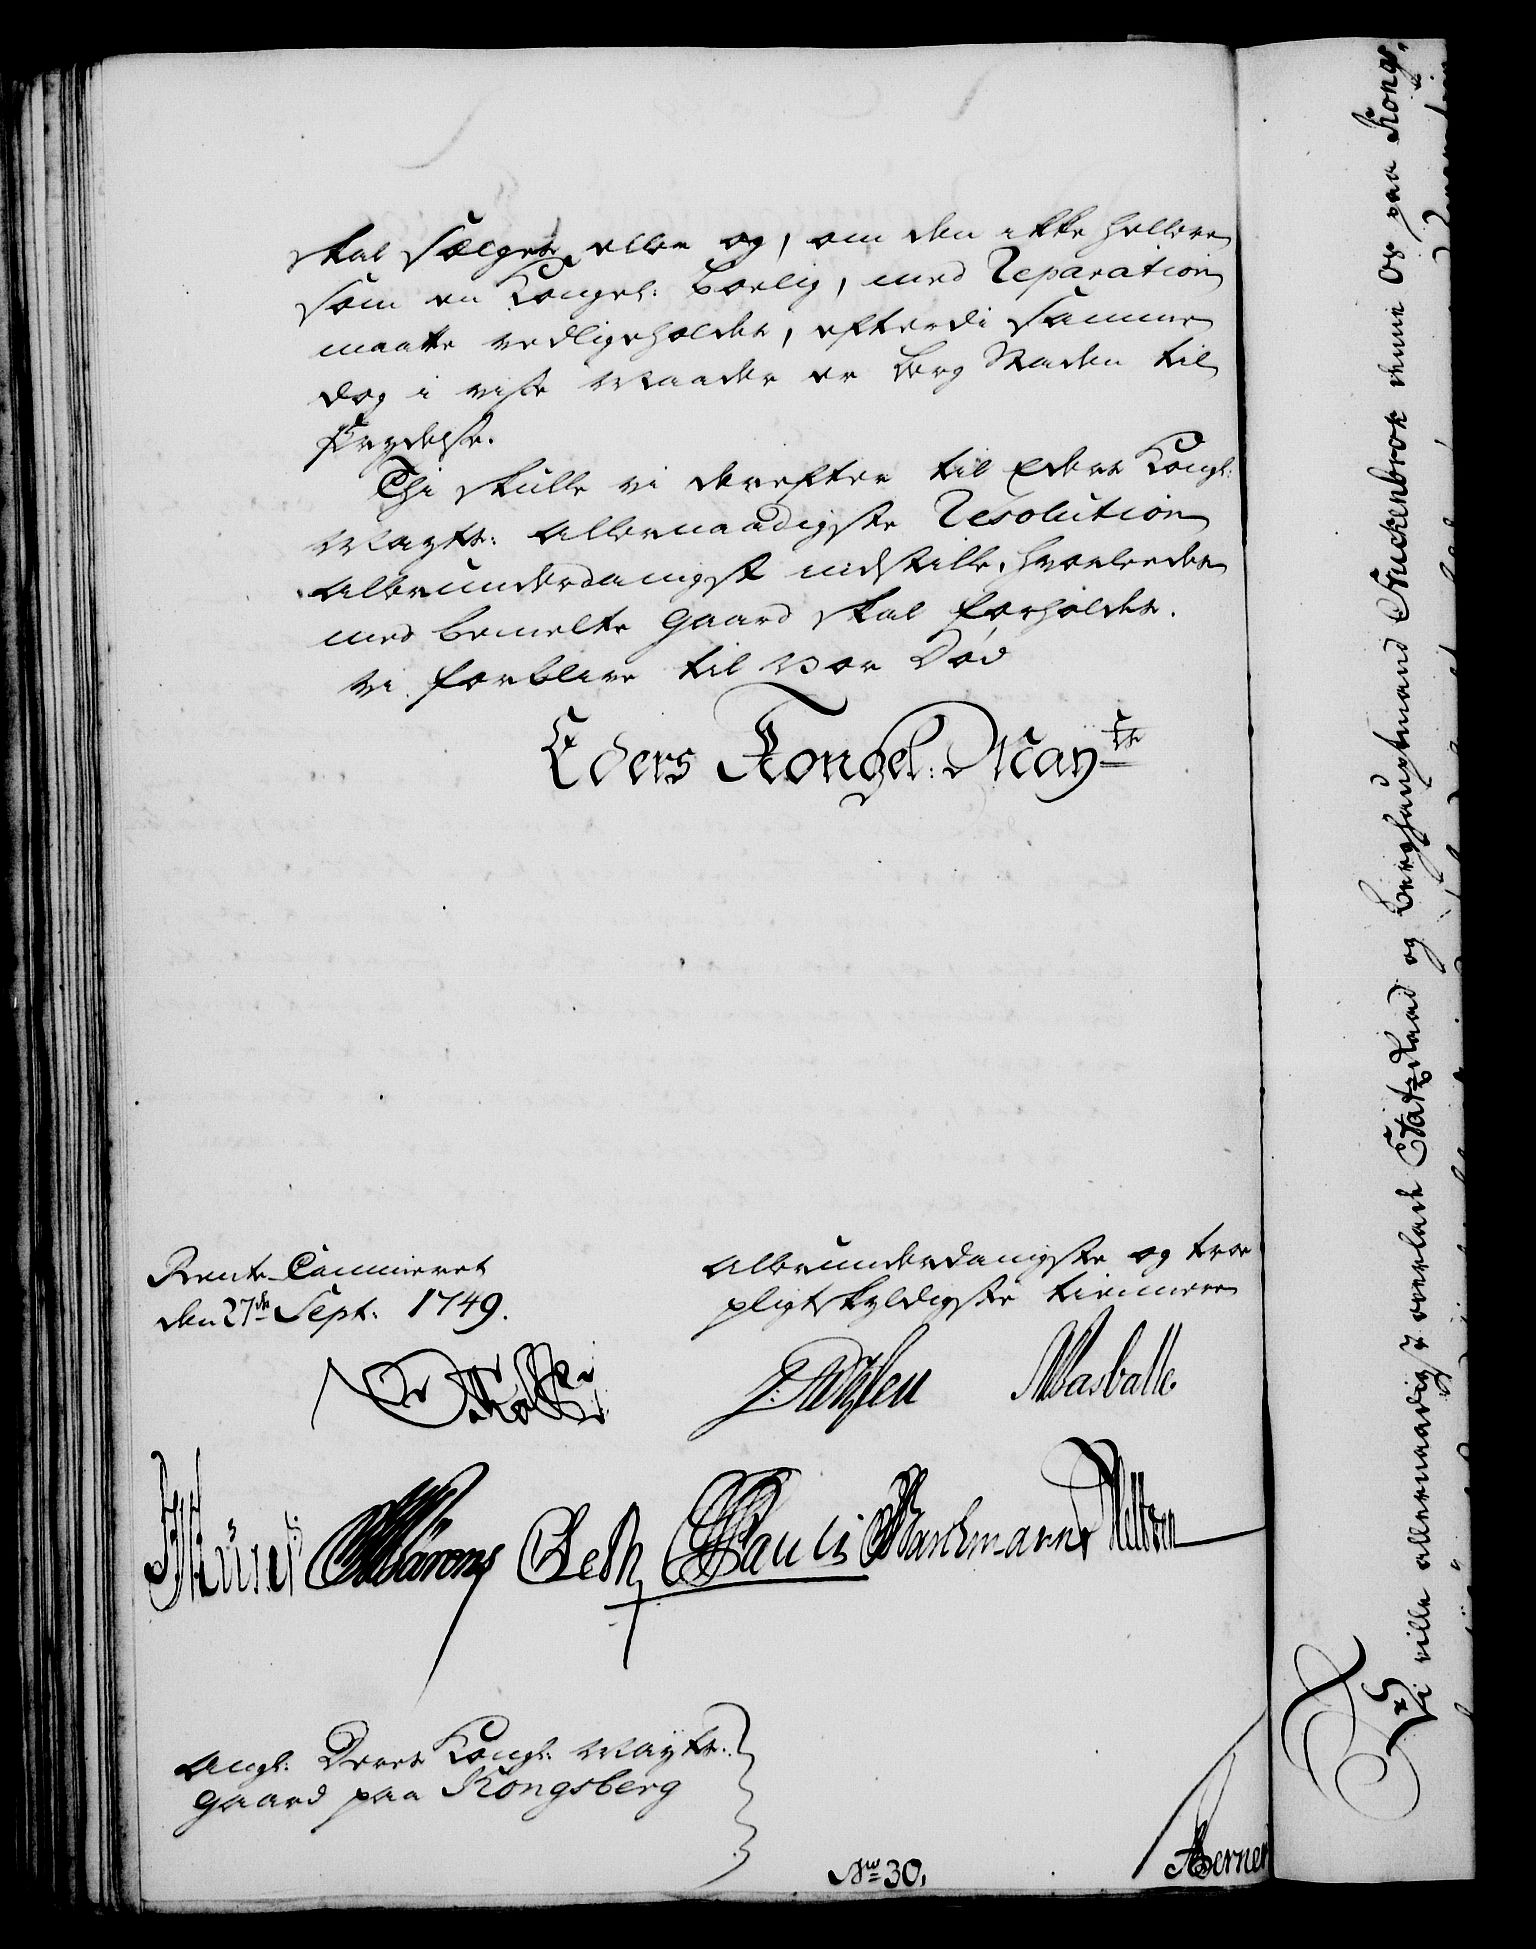 skal sælges eller og, om den ikke hellere
som en Kongel: Boelig, med Reparation
maatte vedligeholdes, efterdi samme
dog i visse Maader er Berg Staden til
Prydelse.
Thi skulle vi derefter til Eders Kongl:
Mayts: allernaadigste Resolution
allerunderdanigst indstille, hvorledes
med bemelte Gaard skal forholdes.
Vi forblive til vor Død
Eders Kongel: May<sup>ts</sup>
Rente-Cammeret
den 27<sup>de</sup> Sept: 1749.
allerunderdanigste og troe
pligtskyldigste tiennere
Masballe
Pauli
Angl: Deres Kongl: Mayts:
Gaard paa Kongsberg
N<sup>o</sup> 30.
Berner
Vi ville allernaadigst overlade Etatz Raad og Berghauptmand Stuckenbrok denne Os paa Kongs-